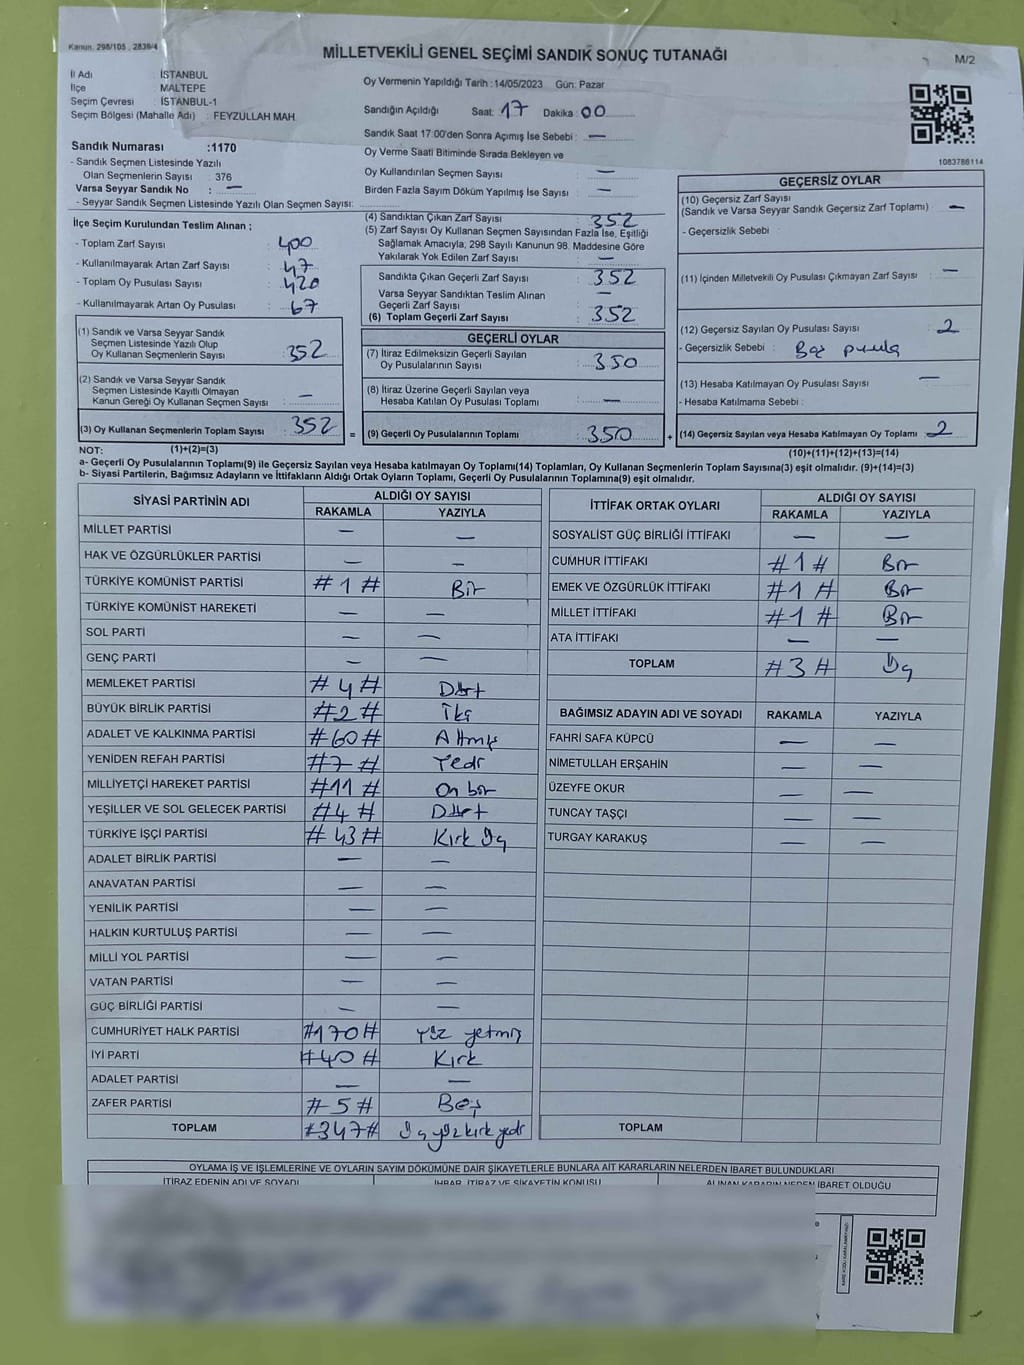 Kanun, 298/105 , 2839/4
MİLLETVEKİLİ GENEL SEÇİMİ SANDIK SONUÇ TUTANAĞI
M/2
İl Adı : İSTANBUL
İlçe MALTEPE
Seçim Çevresi : İSTANBUL-1
Seçim Bölgesi (Mahalle Adı) : FEYZULLAH MAH.
Sandık Numarası :1170
- Sandık Seçmen Listesinde Yazılı
Olan Seçmenlerin Sayısı : 376
Varsa Seyyar Sandık No : —
- Seyyar Sandık Seçmen Listesinde Yazılı Olan Seçmen Sayısı:
Oy Vermenin Yapıldığı Tarih : 14/05/2023 Gün: Pazar
Sandığın Açıldığı Saat: 17 Dakika : 00
Sandık Saat 17:00'den Sonra Açımış İse Sebebi : —
Oy Verme Saati Bitiminde Sırada Bekleyen ve
Oy Kullandırılan Seçmen Sayısı : —
Birden Fazla Sayım Döküm Yapılmış İse Sayısı : —
1083786114
İlçe Seçim Kurulundan Teslim Alınan ;
- Toplam Zarf Sayısı : 400
- Kullanılmayarak Artan Zarf Sayısı : 47
- Toplam Oy Pusulası Sayısı : 420
- Kullanılmayarak Artan Oy Pusulası : 67
(1) Sandık ve Varsa Seyyar Sandık
Seçmen Listesinde Yazılı Olup
Oy Kullanan Seçmenlerin Sayısı : 352
(2) Sandık ve Varsa Seyyar Sandık
Seçmen Listesinde Kayıtlı Olmayan
Kanun Gereği Oy Kullanan Seçmen Sayısı : —
(3) Oy Kullanan Seçmenlerin Toplam Sayısı : 352
(1)+(2)=(3)
(4) Sandıktan Çıkan Zarf Sayısı : 352
(5) Zarf Sayısı Oy Kullanan Seçmen Sayısından Fazla İse, Eşitliği
Sağlamak Amacıyla, 298 Sayılı Kanunun 98. Maddesine Göre
Yakılarak Yok Edilen Zarf Sayısı : —
Sandıkta Çıkan Geçerli Zarf Sayısı : 352
Varsa Seyyar Sandıktan Teslim Alınan
Geçerli Zarf Sayısı : —
(6) Toplam Geçerli Zarf Sayısı : 352
GEÇERLİ OYLAR
(7) İtiraz Edilmeksizin Geçerli Sayılan
Oy Pusulalarının Sayısı : 350
(8) İtiraz Üzerine Geçerli Sayılan veya
Hesaba Katılan Oy Pusulası Toplamı : —
= (9) Geçerli Oy Pusulalarının Toplamı : 350 +
GEÇERSİZ OYLAR
(10) Geçersiz Zarf Sayısı
(Sandık ve Varsa Seyyar Sandık Geçersiz Zarf Toplamı) : —
- Geçersizlik Sebebi :
(11) İçinden Milletvekili Oy Pusulası Çıkmayan Zarf Sayısı : —
(12) Geçersiz Sayılan Oy Pusulası Sayısı : 2
- Geçersizlik Sebebi : Boş pusula
(13) Hesaba Katılmayan Oy Pusulası Sayısı : —
- Hesaba Katılmama Sebebi :
(14) Geçersiz Sayılan veya Hesaba Katılmayan Oy Toplamı : 2
(10)+(11)+(12)+(13)=(14)
NOT:
a- Geçerli Oy Pusulalarının Toplamı(9) ile Geçersiz Sayılan veya Hesaba katılmayan Oy Toplamı(14) Toplamları, Oy Kullanan Seçmenlerin Toplam Sayısına(3) eşit olmalıdır. (9)+(14)=(3)
b- Siyasi Partilerin, Bağımsız Adayların ve İttifakların Aldığı Ortak Oyların Toplamı, Geçerli Oy Pusulalarının Toplamına(9) eşit olmalıdır.
SİYASİ PARTİNİN ADI ALDIĞI OY SAYISI
RAKAMLA YAZIYLA
MİLLET PARTİSİ — —
HAK VE ÖZGÜRLÜKLER PARTİSİ — —
TÜRKİYE KOMÜNİST PARTİSİ #1# Bir
TÜRKİYE KOMÜNİST HAREKETİ — —
SOL PARTİ — —
GENÇ PARTİ — —
MEMLEKET PARTİSİ #4# Dört
BÜYÜK BİRLİK PARTİSİ #2# İki
ADALET VE KALKINMA PARTİSİ #60# Altmış
YENİDEN REFAH PARTİSİ #7# Yedi
MİLLİYETÇİ HAREKET PARTİSİ #11# On bir
YEŞİLLER VE SOL GELECEK PARTİSİ #4# Dört
TÜRKİYE İŞÇİ PARTİSİ #43# Kırk Üç
ADALET BİRLİK PARTİSİ — —
ANAVATAN PARTİSİ — —
YENİLİK PARTİSİ — —
HALKIN KURTULUŞ PARTİSİ — —
MİLLİ YOL PARTİSİ — —
VATAN PARTİSİ — —
GÜÇ BİRLİĞİ PARTİSİ — —
CUMHURİYET HALK PARTİSİ #170# Yüz yetmiş
İYİ PARTİ #40# Kırk
ADALET PARTİSİ — —
ZAFER PARTİSİ #5# Beş
TOPLAM #347# Üç yüz kırk yedi
İTTİFAK ORTAK OYLARI ALDIĞI OY SAYISI
RAKAMLA YAZIYLA
SOSYALİST GÜÇ BİRLİĞİ İTTİFAKI — —
CUMHUR İTTİFAKI #1# Bir
EMEK VE ÖZGÜRLÜK İTTİFAKI #1# Bir
MİLLET İTTİFAKI #1# Bir
ATA İTTİFAKI — —
TOPLAM #3# Üç
BAĞIMSIZ ADAYIN ADI VE SOYADI RAKAMLA YAZIYLA
FAHRİ SAFA KÜPCÜ — —
NİMETULLAH ERŞAHİN — —
ÜZEYFE OKUR — —
TUNCAY TAŞÇI — —
TURGAY KARAKUŞ — —
TOPLAM
OYLAMA İŞ VE İŞLEMLERİNE VE OYLARIN SAYIM DÖKÜMÜNE DAİR ŞİKAYETLERLE BUNLARA AİT KARARLARIN NELERDEN İBARET BULUNDUKLARI
İTİRAZ EDENİN ADI VE SOYADI İHBAR, İTİRAZ VE ŞİKAYETİN KONUSU ALINAN KARARIN NEDEN İBARET OLDUĞU